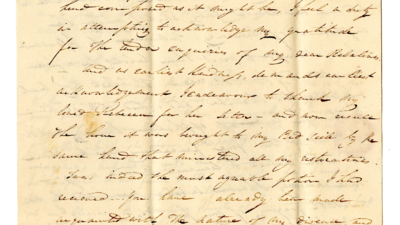 hand composed as it might be, I feel a duty
in attempting to acknowledge my gratitude
for the tender enquiries of my dear Relations
and as earliest kindness, demands earliest
acknowledgement I endeavour to thank my
loved Rebecca for her letter – and now
the hour it was brought to my Bed Side by the
same hand that ministered all my restoratives.
was, indeed the most agreeable potion I had
received. You have already been made
acquainted with the nature of my disease and